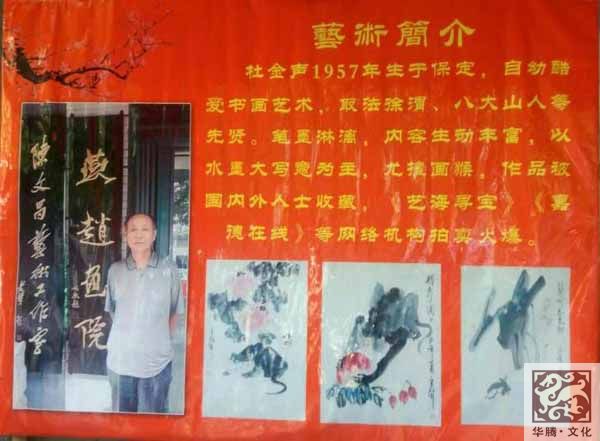 藝術簡介
杜金声1957年生于保定，自幼酷
爱书画艺术，取法徐渭、八大山人等
先贤。笔墨淋漓，内容生动丰富，以
水墨大写意为主，尤擅画猴，作品被
国内外人士收藏，《艺海寻宝》《嘉
德在线》等网络机构拍卖火爆。
燕趙画院
陳文昌藝術工作室
华腾·文化